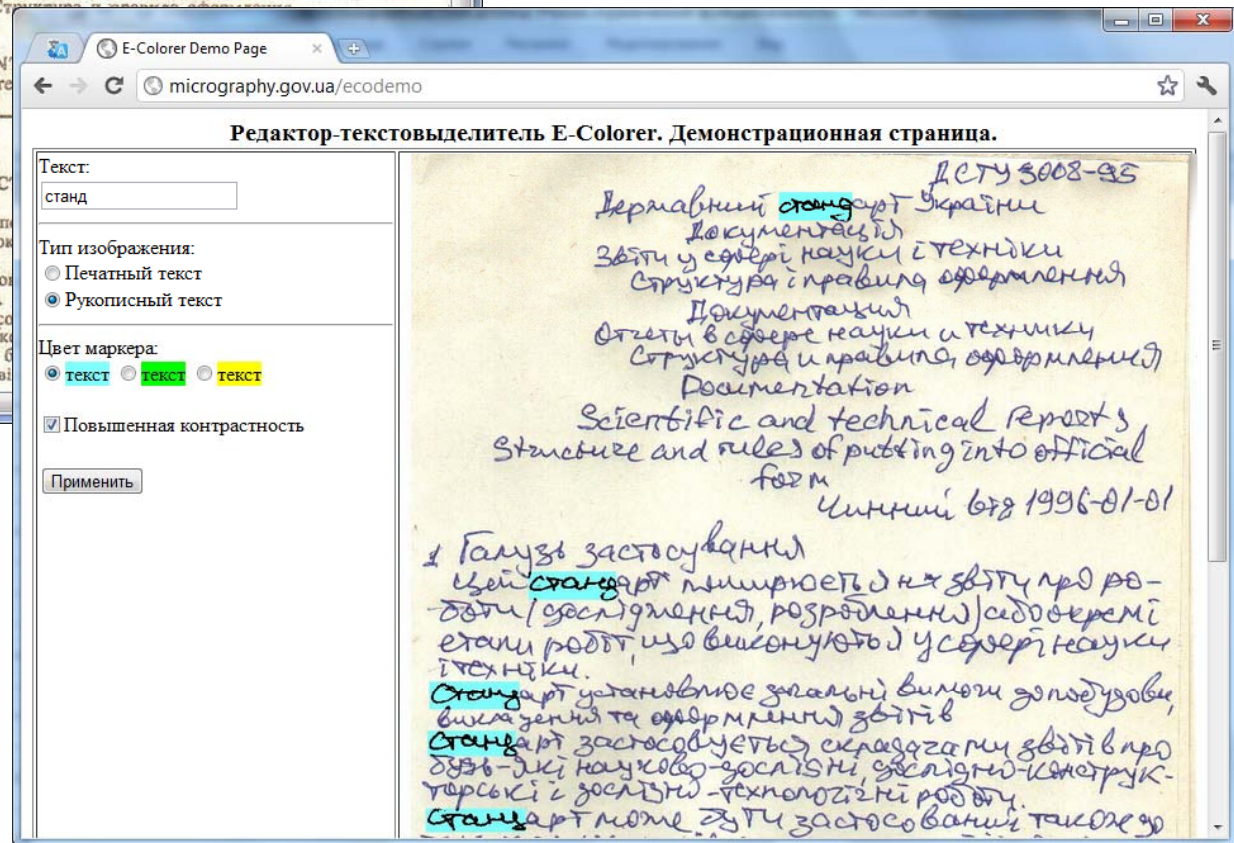 Структура и правила оформления
E-Colorer Demo Page
micrography.gov.ua/ecodemo
Редактор-текстовыделитель E-Colorer. Демонстрационная страница.
Текст:
станд
Тип изображения:
Печатный текст
Рукописный текст
Цвет маркера:
текст текст текст
Повышенная контрастность
Применить
ДСТУ 3008-95
Державний стандарт України
Документація
Звіти у сфері науки і техніки
Структура і правила оформлення
Документация
Отчеты в сфере науки и техники
Структура и правила оформления
Documentation
Scientific and technical reports
Structure and rules of putting into official
form
Чинний від 1996-01-01
1 Галузь застосування
Цей стандарт поширюється на звіти про ро-
-боти (дослідження, розроблення) або окремі
етапи робіт, що виконуються у сфері науки
і техніки.
Стандарт установлює загальні вимоги до побудови,
викладення та оформлення звітів
Стандарт застосовується складачами звітів про
будь-які науково-дослідні, дослідно-конструк-
торські і дослідно-технологічні роботи.
Стандарт може бути застосований також до